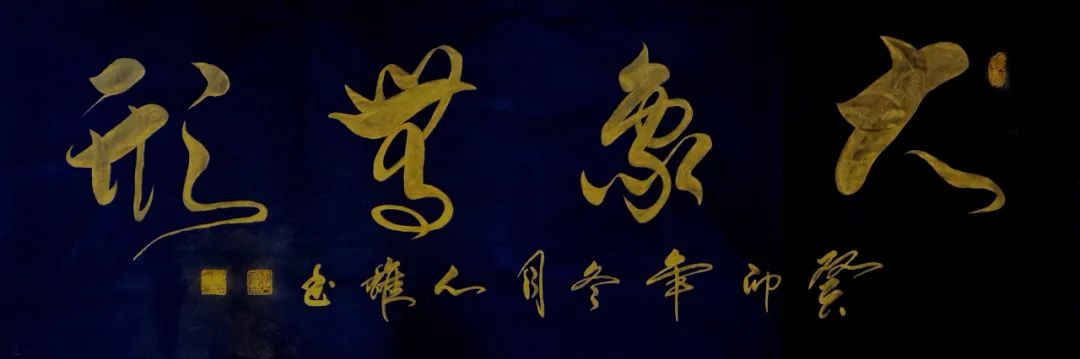 大象無形
癸卯年冬月心雄书